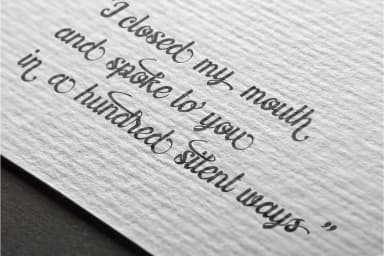 I closed my mouth
and spoke to you
in a hundred silent ways”